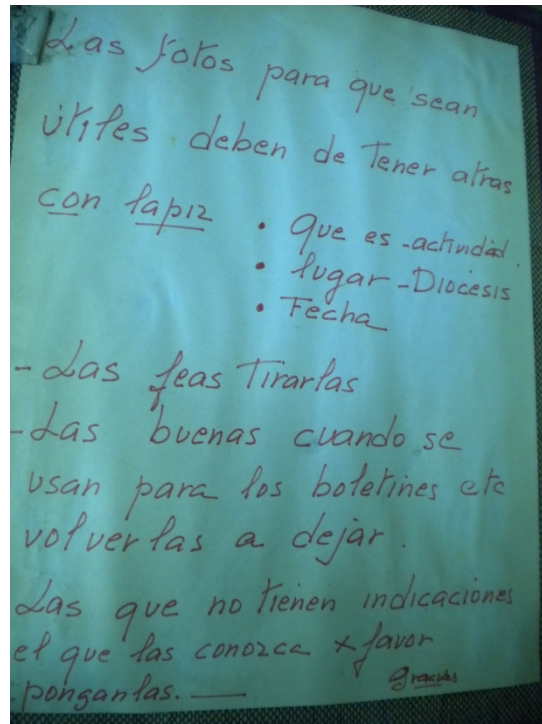 Las fotos para que sean
útiles deben de Tener atras
con lapiz • Que es - actividad.
• lugar - Diocesis
• Fecha
- Las feas Tirarlas
- Las buenas cuando se
usan para los boletines etc
volverlas a dejar.
Las que no tienen indicaciones
el que las conozca x favor
ponganlas. —
Gracias